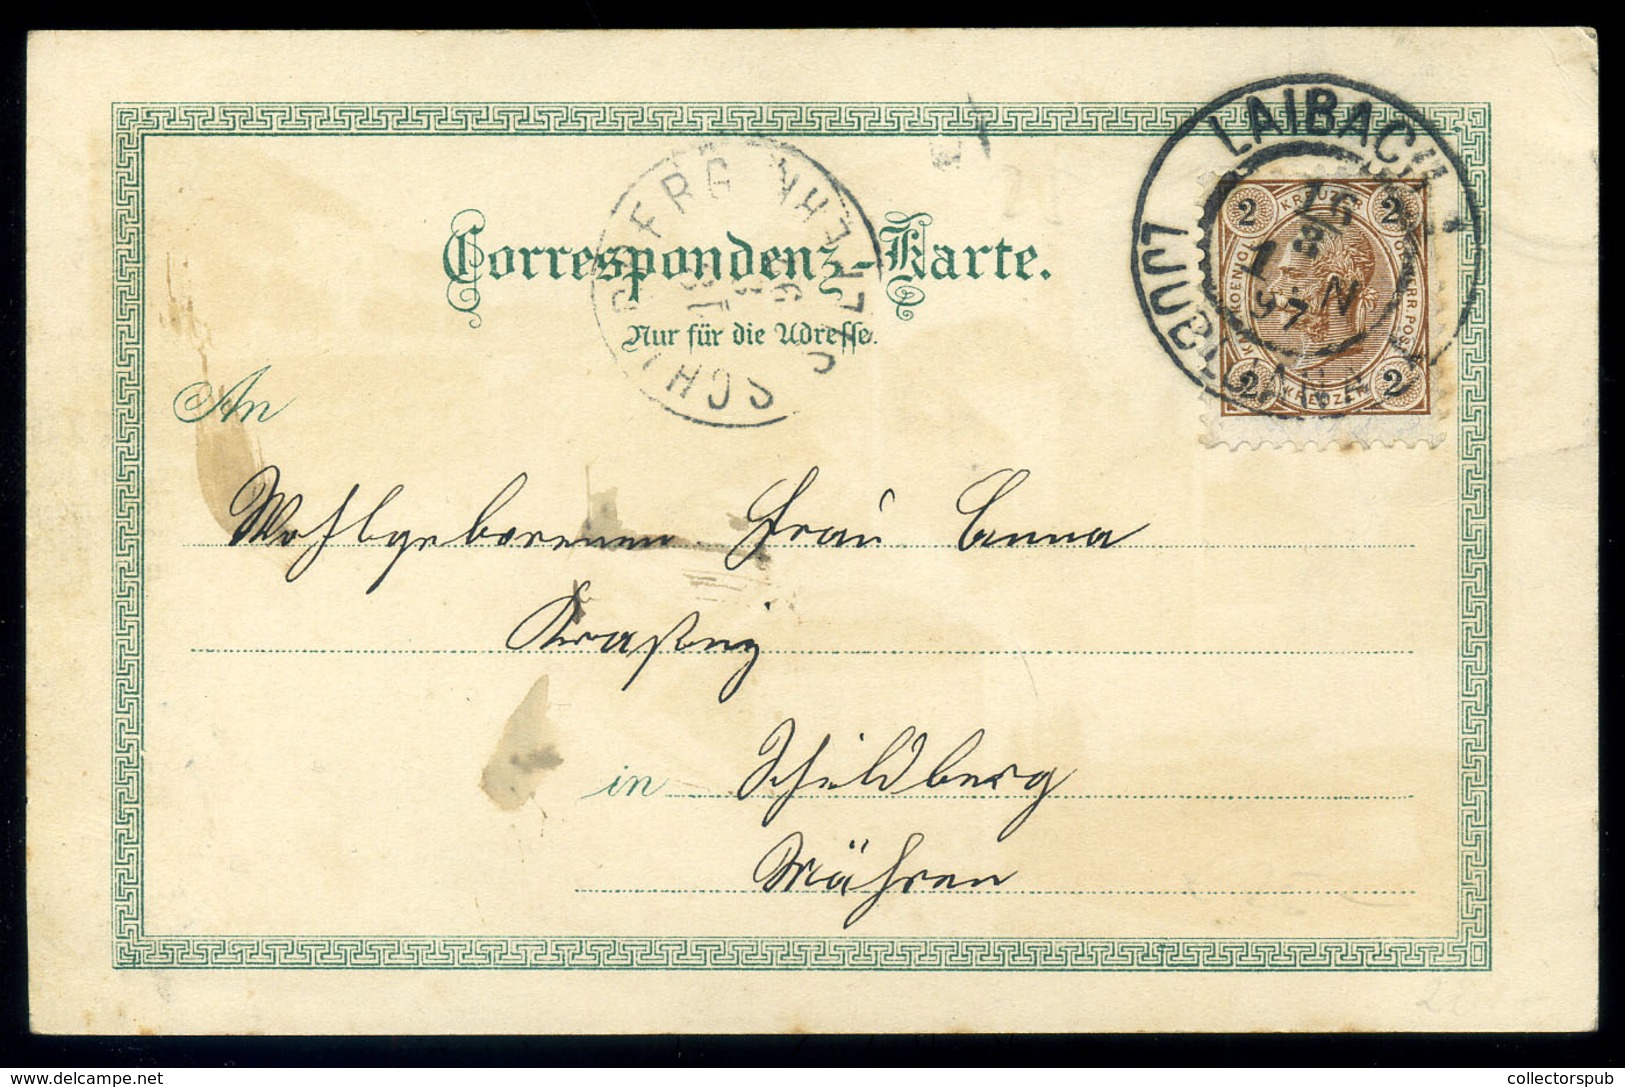 LAIBACH 1
LJUBLJANA
26
3
97
N
2 KREUZER 2
2 KREUZER 2
SCHILDBERG
Correspondenz-Karte.
Nur für die Adresse.
An
Wohlgeborenen Frau Anna
in Schildberg
Mähren
collectorspub